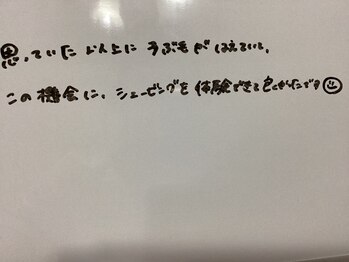 思っていた以上にうぶ毛がはえていて、
この機会に、シェービングを体験できて良かったです☺